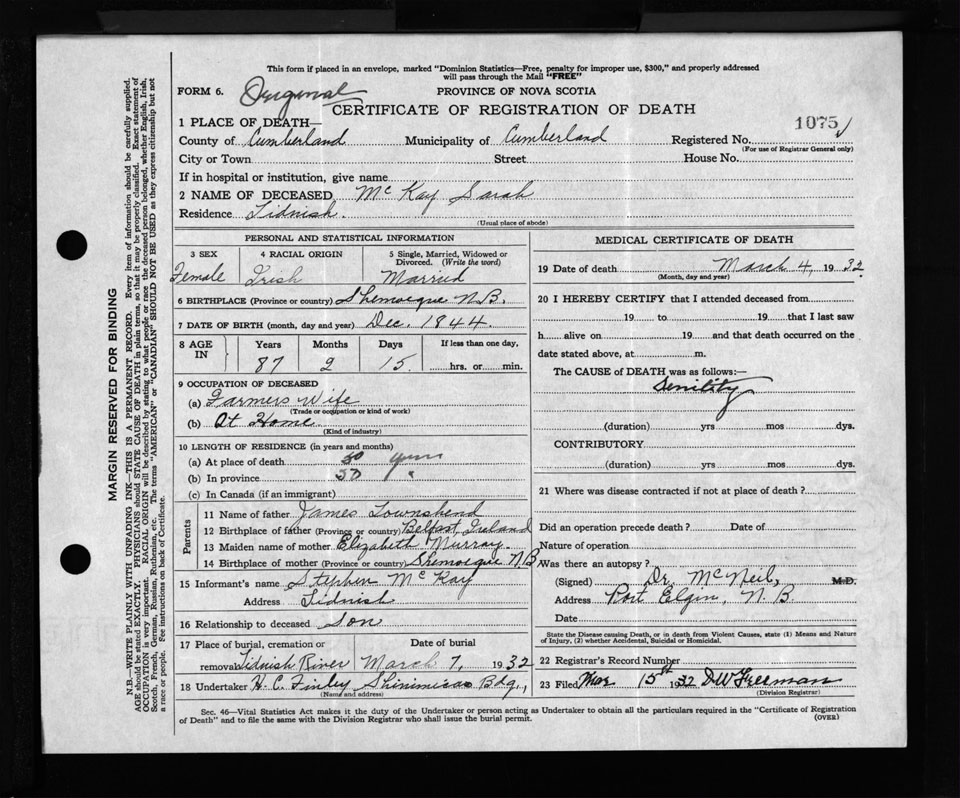 This form if placed in an envelope, marked "Dominion Statistics—Free, penalty for improper use, $300," and properly addressed
will pass through the Mail "FREE"
FORM 6. Original PROVINCE OF NOVA SCOTIA
CERTIFICATE OF REGISTRATION OF DEATH
1075
1 PLACE OF DEATH—
County of Cumberland Municipality of Cumberland Registered No.
(For use of Registrar General only)
City or Town Street House No.
If in hospital or institution, give name
2 NAME OF DECEASED Mc Kay Sarah
Residence Tidnish.
(Usual place of abode)
PERSONAL AND STATISTICAL INFORMATION
3 SEX 4 RACIAL ORIGIN 5 Single, Married, Widowed or
Divorced. (Write the word)
Female Irish Married
6 BIRTHPLACE (Province or country) Shemogue N.B.
7 DATE OF BIRTH (month, day and year) Dec. 1844.
8 AGE IN Years Months Days If less than one day,
87 2 15. hrs. or min.
9 OCCUPATION OF DECEASED
(a) Farmers Wife
(Trade or occupation or kind of work)
(b) At Home
(Kind of industry)
10 LENGTH OF RESIDENCE (in years and months)
(a) At place of death 50 years
(b) In province 50 "
(c) In Canada (if an immigrant)
Parents
11 Name of father James Townshend
12 Birthplace of father (Province or country) Belfast, Ireland
13 Maiden name of mother Elizabeth Murray.
14 Birthplace of mother (Province or country) Shemogue N.B.
15 Informant's name Stephen Mc Kay
Address Tidnish
16 Relationship to deceased Son
17 Place of burial, cremation or Date of burial
removal Tidnish River March 7, 1932
18 Undertaker H. C. Finley Shinimicas Bdg.,
(Name and address)
MEDICAL CERTIFICATE OF DEATH
19 Date of death March 4, 1932
(Month, day and year)
20 I HEREBY CERTIFY that I attended deceased from
19 to 19 that I last saw
h alive on 19 and that death occurred on the
date stated above, at m.
The CAUSE of DEATH was as follows:—
Senility
(duration) yrs mos dys.
CONTRIBUTORY
(duration) yrs mos dys.
21 Where was disease contracted if not at place of death?
Did an operation precede death? Date of
Nature of operation
Was there an autopsy?
(Signed) Dr. McNeil, M.D.
Address Port Elgin, N.B.
Date
State the Disease causing Death, or in death from Violent Causes, state (1) Means and Nature
of Injury, (2) whether Accidental, Suicidal or Homicidal.
22 Registrar's Record Number
23 Filed Mar 15th 1932 DW Freeman
(Division Registrar)
Sec. 46—Vital Statistics Act makes it the duty of the Undertaker or person acting as Undertaker to obtain all the particulars required in the "Certificate of Registration
of Death" and to file the same with the Division Registrar who shall issue the burial permit.
(OVER)
MARGIN RESERVED FOR BINDING
N.B.—WRITE PLAINLY WITH UNFADING INK—THIS IS A PERMANENT RECORD. Every item of information should be carefully supplied.
AGE should be stated EXACTLY. PHYSICIANS should STATE CAUSE OF DEATH in plain terms, so that it may be properly classified. Exact statement of
OCCUPATION is very important. RACIAL ORIGIN will be described by stating to what people or race the deceased person belonged, whether English, Irish,
Scotch, French, German, Russian, Ruthenian, etc. The terms "AMERICAN" or "CANADIAN" SHOULD NOT BE USED as they express citizenship but not
a race or people. See instructions on back of Certificate.